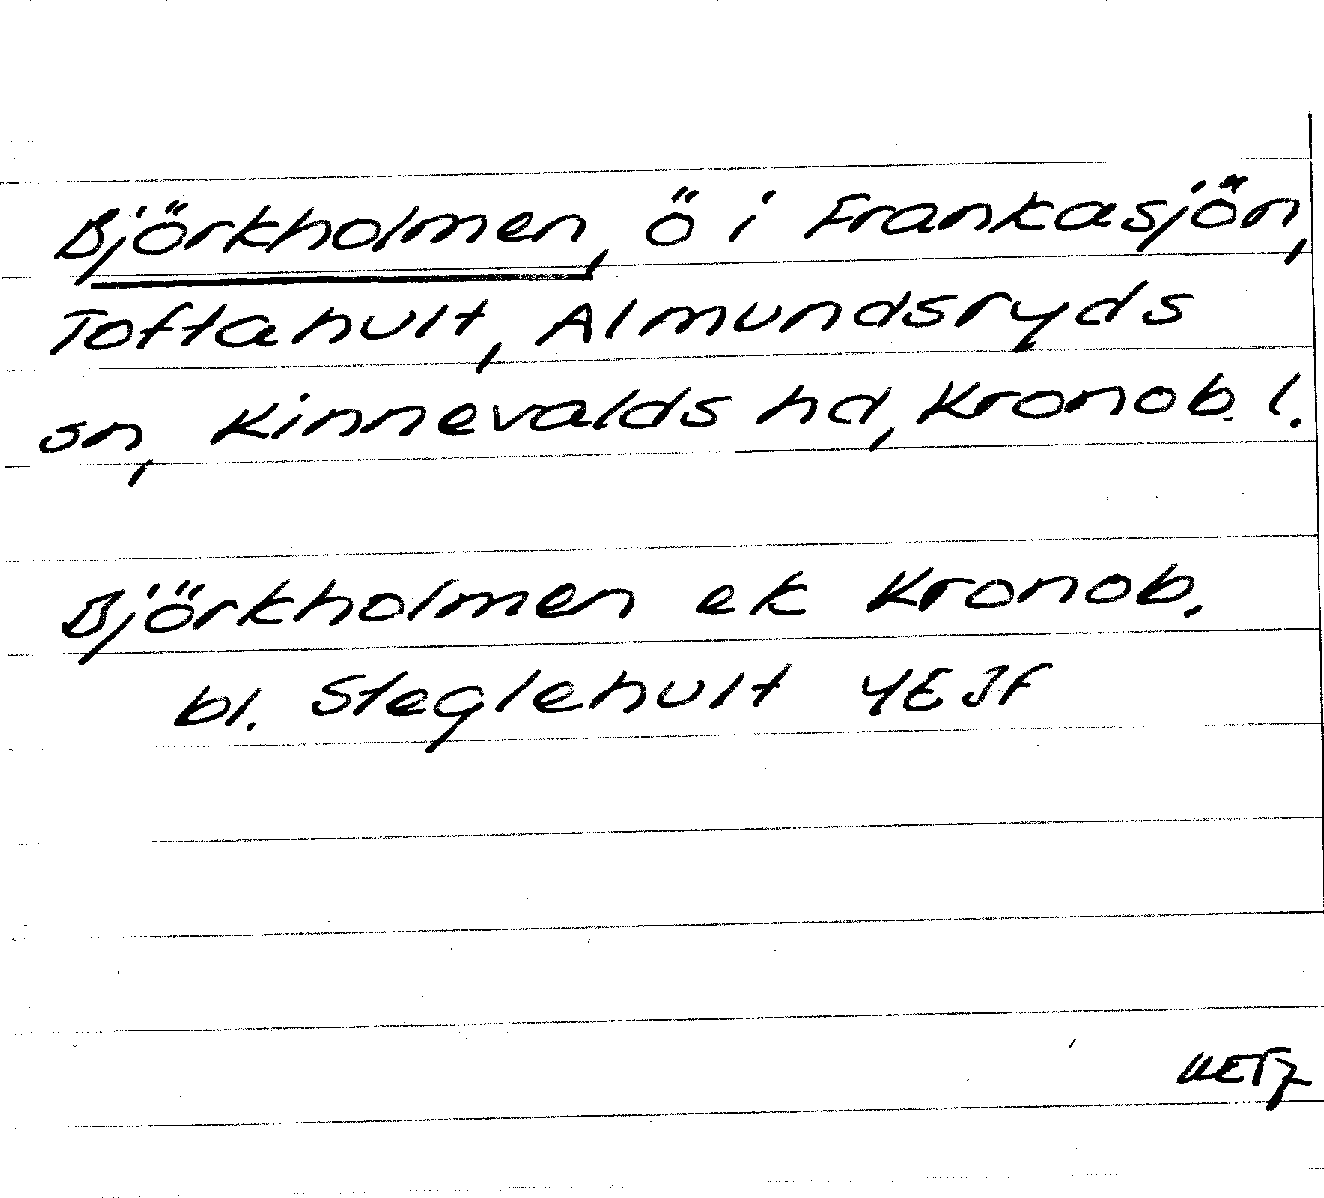 Björkholmen, ö i Frankasjön,
Toftahult, Almundsryds
sn, Kinnevalds hd, Kronob. l.
Björkholmen ek Kronob.
bl. Steglehult 4E Jf